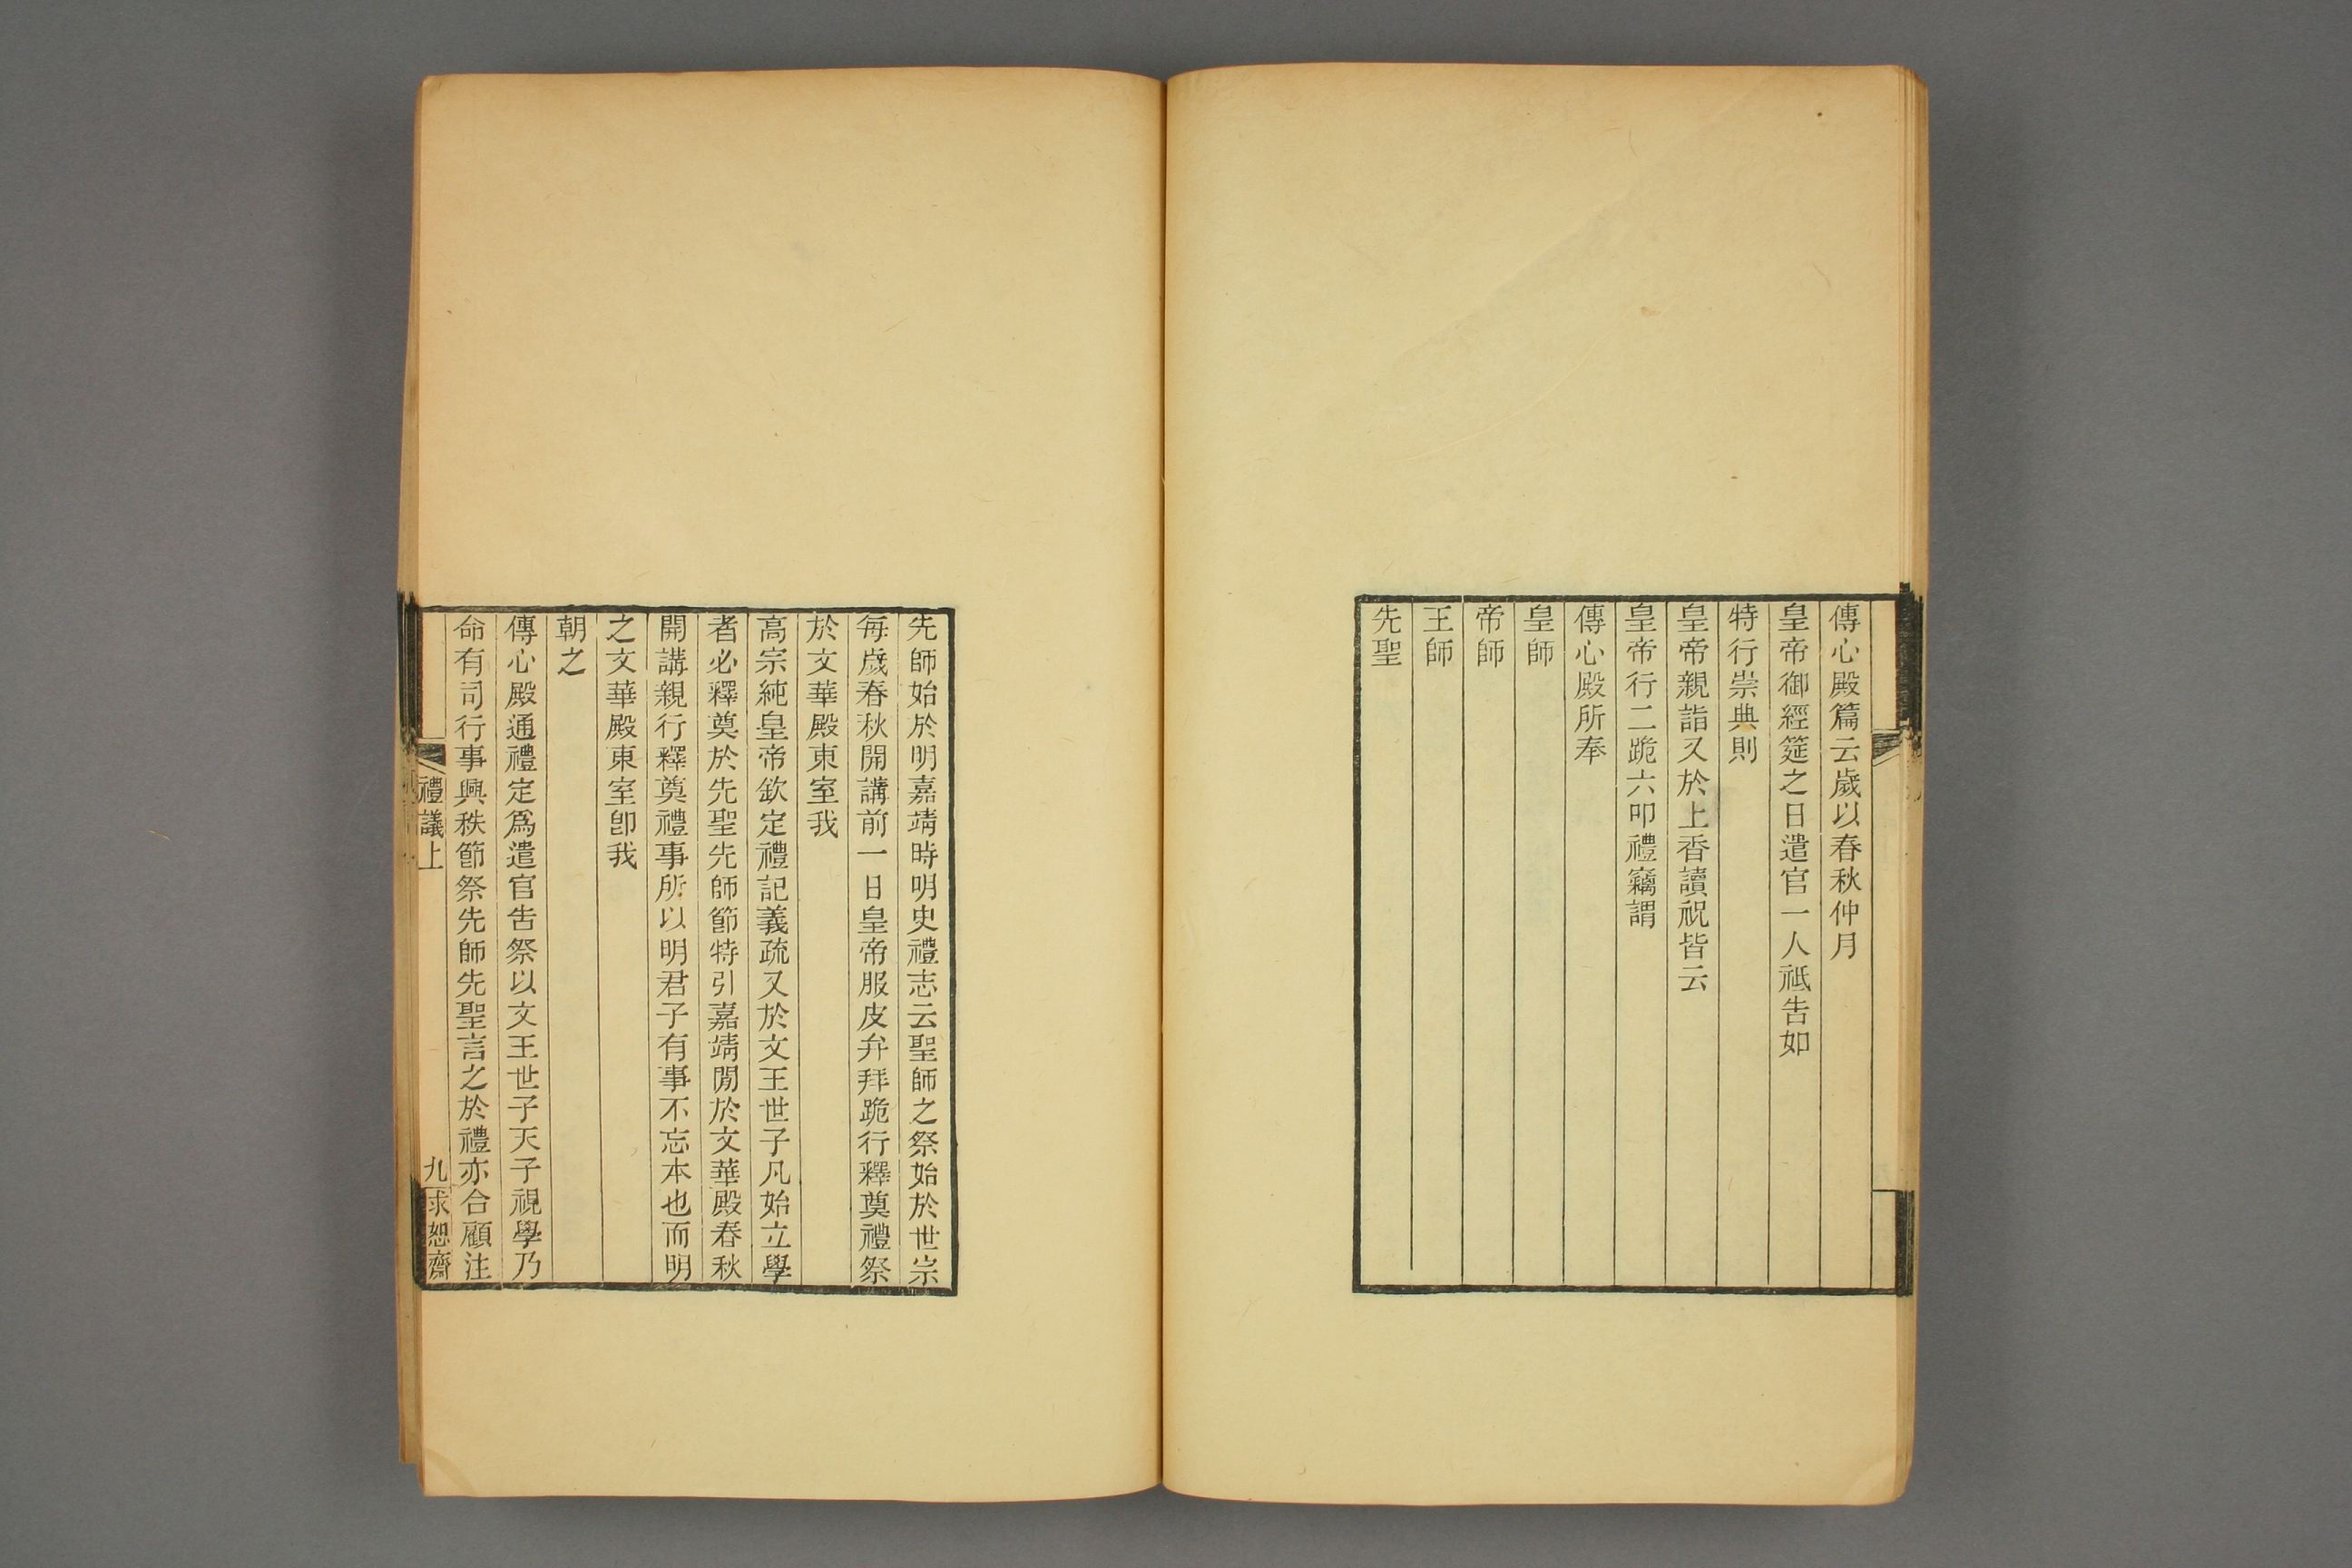 傳心殿篇云歲以春秋仲月
皇帝御經筵之日遣官一人祗告如
特行崇典則
皇帝親詣又於上香讀祝皆云
皇帝行二跪六叩禮竊謂
傳心殿所奉
皇師
帝師
王師
先聖
先師始於明嘉靖時明史禮志云聖師之祭始於世宗
每歲春秋開講前一日皇帝服皮弁拜跪行釋奠禮祭
於文華殿東室我
高宗純皇帝欽定禮記義疏又於文王世子凡始立學
者必釋奠於先聖先師節特引嘉靖閒於文華殿春秋
開講親行釋奠禮事所以明君子有事不忘本也而明
之文華殿東室卽我
朝之
傳心殿通禮定爲遣官告祭以文王世子天子視學乃
命有司行事興秩節祭先師先聖言之於禮亦合顧注
禮議上
九
求恕齋